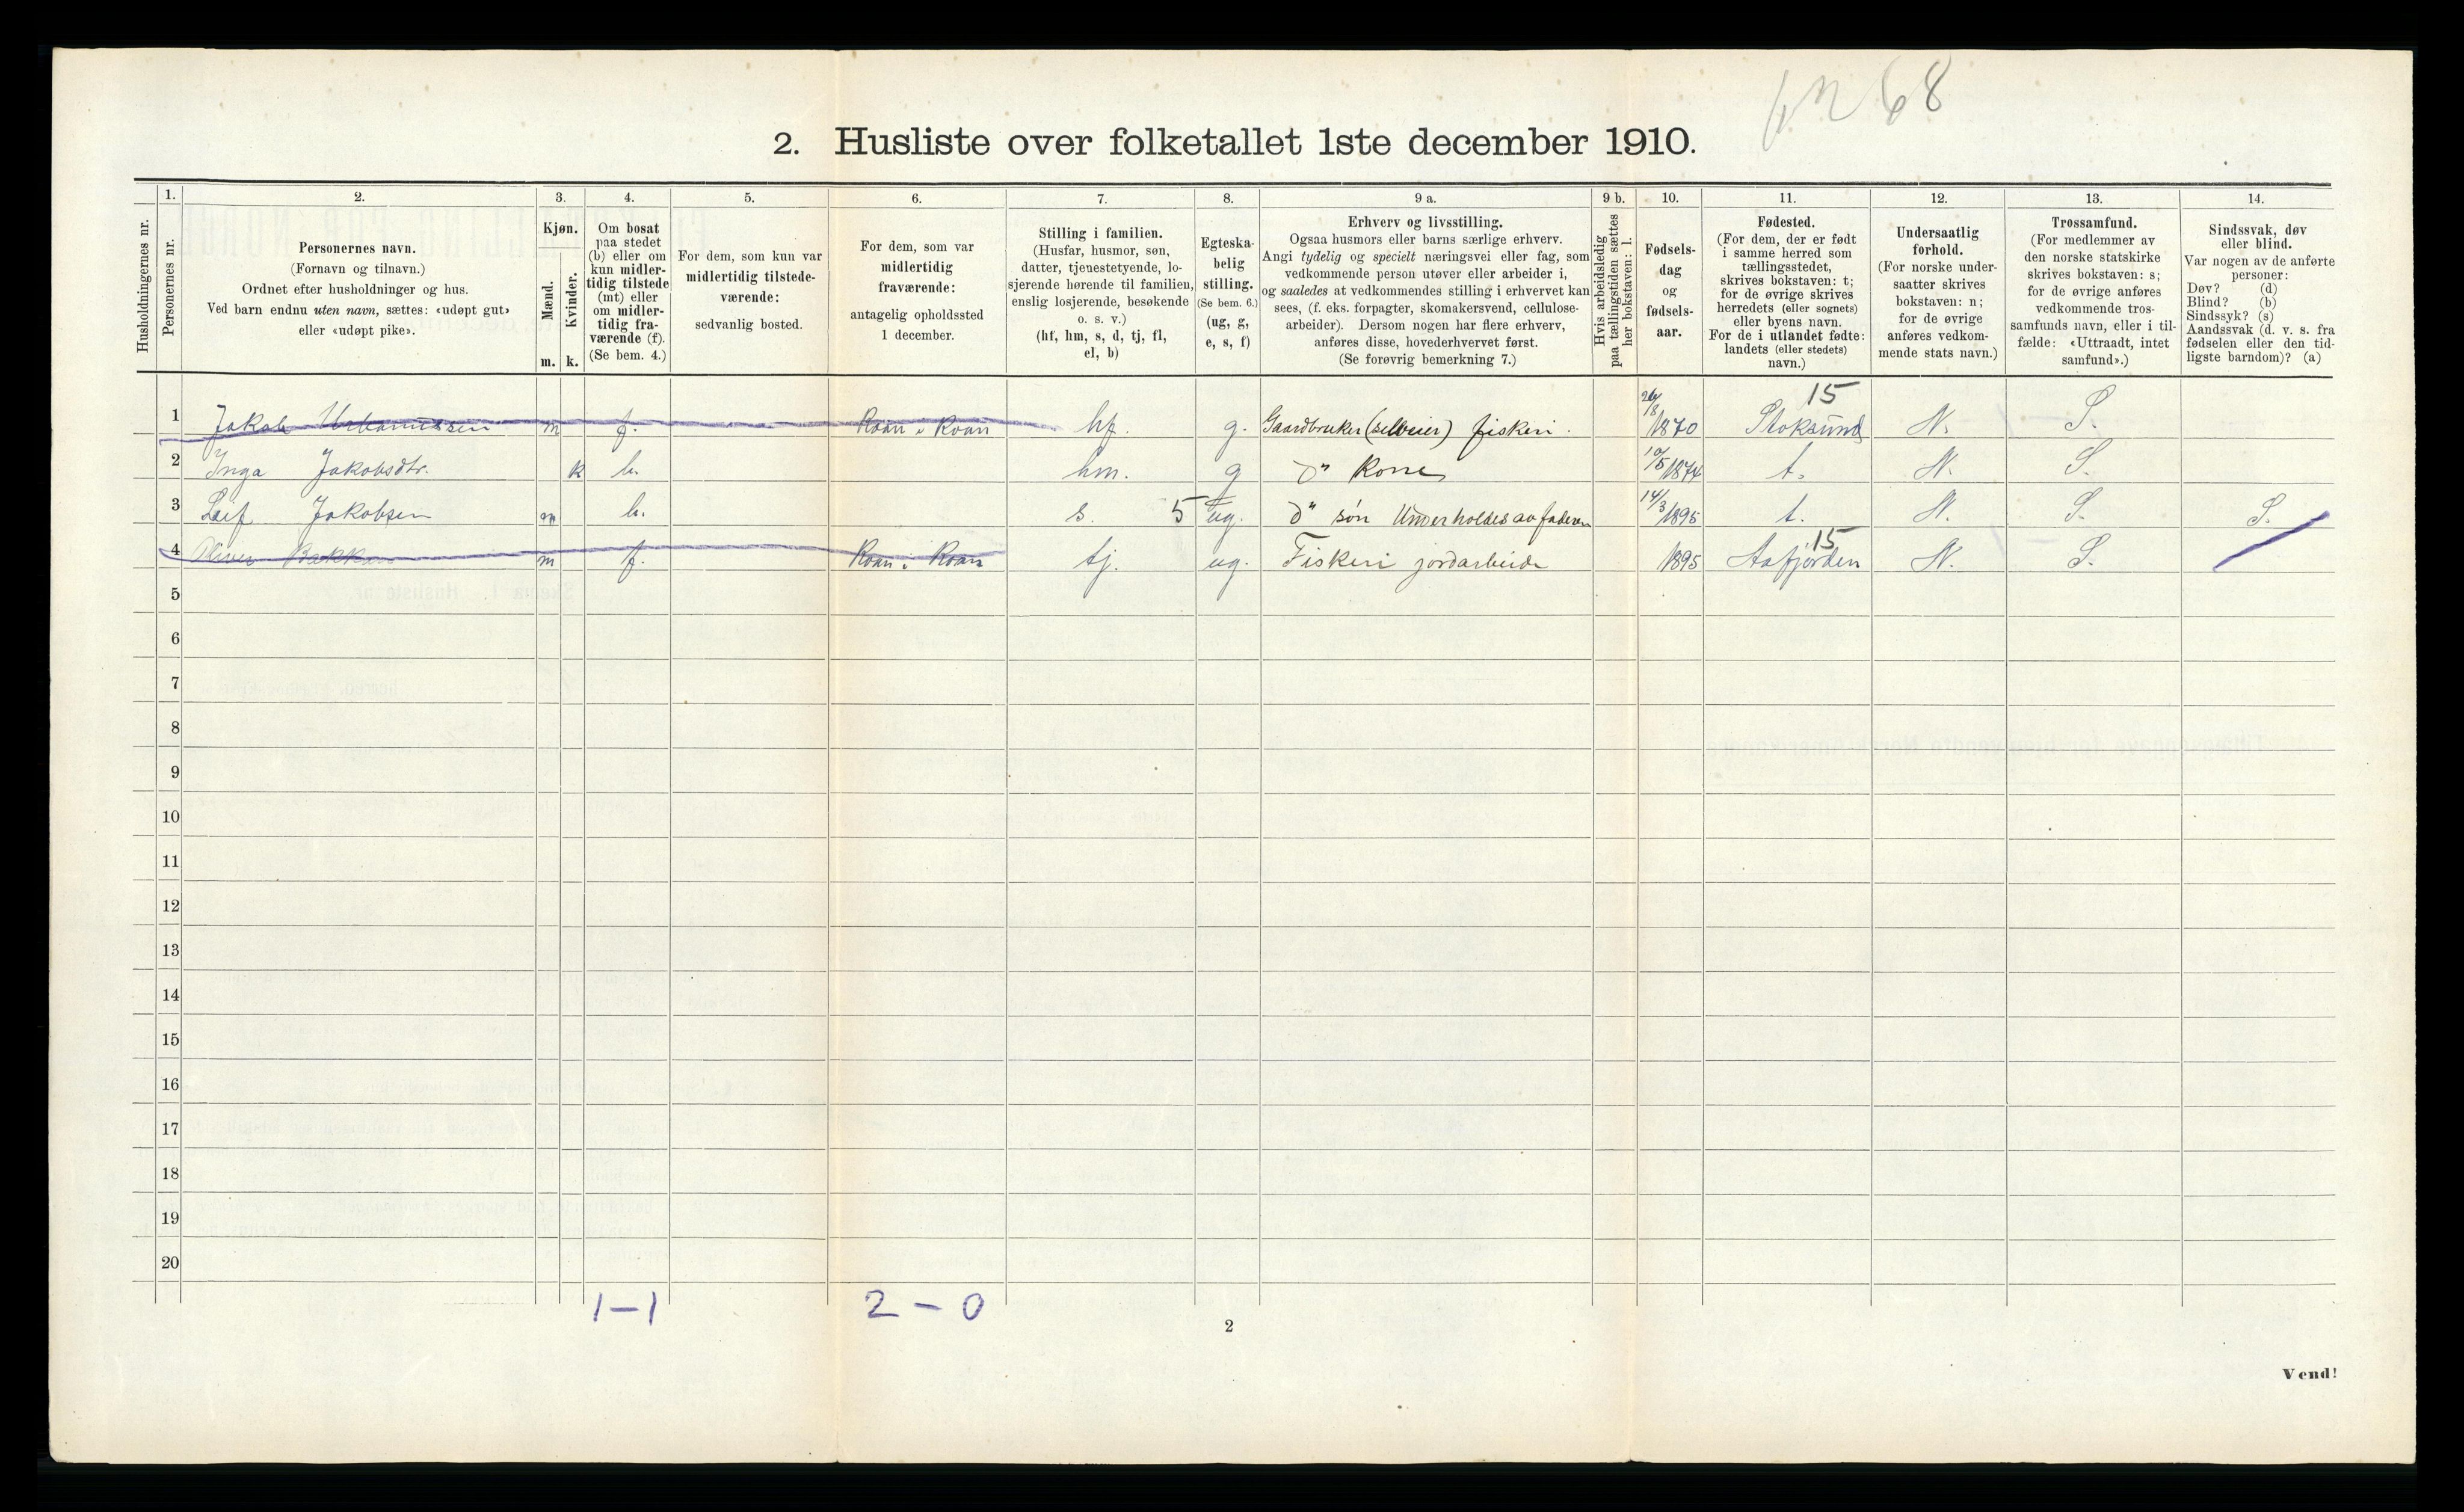 68
2. Husliste over folketallet 1ste december 1910.
Husholdningernes nr.
1.
Personernes nr.
2.
Personernes navn.
(Fornavn og tilnavn.)
Ordnet efter husholdninger og hus.
Ved barn endnu uten navn, sættes: «udøpt gut»
eller «udøpt pike».
3.
Kjøn.
Mænd.
Kvinder.
m. k.
4.
Om bosat
paa stedet
(b) eller om
kun midler-
tidig tilstede
(mt) eller
om midler-
tidig fra-
værende (f).
(Se bem. 4.)
5.
For dem, som kun var
midlertidig tilstede-
værende:
sedvanlig bosted.
6.
For dem, som var
midlertidig
fraværende:
antagelig opholdssted
1 december.
7.
Stilling i familien.
(Husfar, husmor, søn,
datter, tjenestetyende, lo-
sjerende hørende til familien,
enslig losjerende, besøkende
o. s. v.)
(hf, hm, s, d, tj, fl,
el, b)
8.
Egteska-
belig
stilling.
(Se bem. 6.)
(ug, g,
e, s, f)
9 a.
Erhverv og livsstilling.
Ogsaa husmors eller barns særlige erhverv.
Angi tydelig og specielt næringsvei eller fag, som
vedkommende person utøver eller arbeider i,
og saaledes at vedkommendes stilling i erhvervet kan
sees, (f. eks. forpagter, skomakersvend, cellulose-
arbeider). Dersom nogen har flere erhverv,
anføres disse, hovederhvervet først.
(Se forøvrig bemerkning 7.)
9 b.
Hvis arbeidsledig
paa tællingstiden sættes
her bokstaven: l.
10.
Fødsels-
dag
og
fødsels-
aar.
11.
Fødested.
(For dem, der er født
i samme herred som
tællingsstedet,
skrives bokstaven: t;
for de øvrige skrives
herredets (eller sognets)
eller byens navn.
For de i utlandet fødte:
landets (eller stedets)
navn.)
12.
Undersaatlig
forhold.
(For norske under-
saatter skrives
bokstaven: n;
for de øvrige
anføres vedkom-
mende stats navn.)
13.
Trossamfund.
(For medlemmer av
den norske statskirke
skrives bokstaven: s;
for de øvrige anføres
vedkommende tros-
samfunds navn, eller i til-
fælde: «Uttraadt, intet
samfund».)
14.
Sindssvak, døv
eller blind.
Var nogen av de anførte
personer:
Døv? (d)
Blind? (b)
Sindssyk? (s)
Aandssvak (d. v. s. fra
fødselen eller den tid-
ligste barndom)? (a)
15
1 Jakob Urbanussen m f. Roan i Roan hf. g. Gaardbruker (selveier) fiskeri. 26/8 1870 Stoksund N. S.
2 Inga Jakobsdtr. k b. hm. g Do Kone 10/5 1874 t. N. S.
3 Leif Jakobsen m b. s. 5 ug. Do søn Underholdes av faderen 14/3 1895 t. N. S. S.
15
4 Oliver Bakken m f. Roan i Roan tj. ug. Fiskeri jordarbeide 1895 Aafjorden N. S.
5
6
7
8
9
10
11
12
13
14
15
16
17
18
19
20
1 – 1 2 – 0
2
Vend!